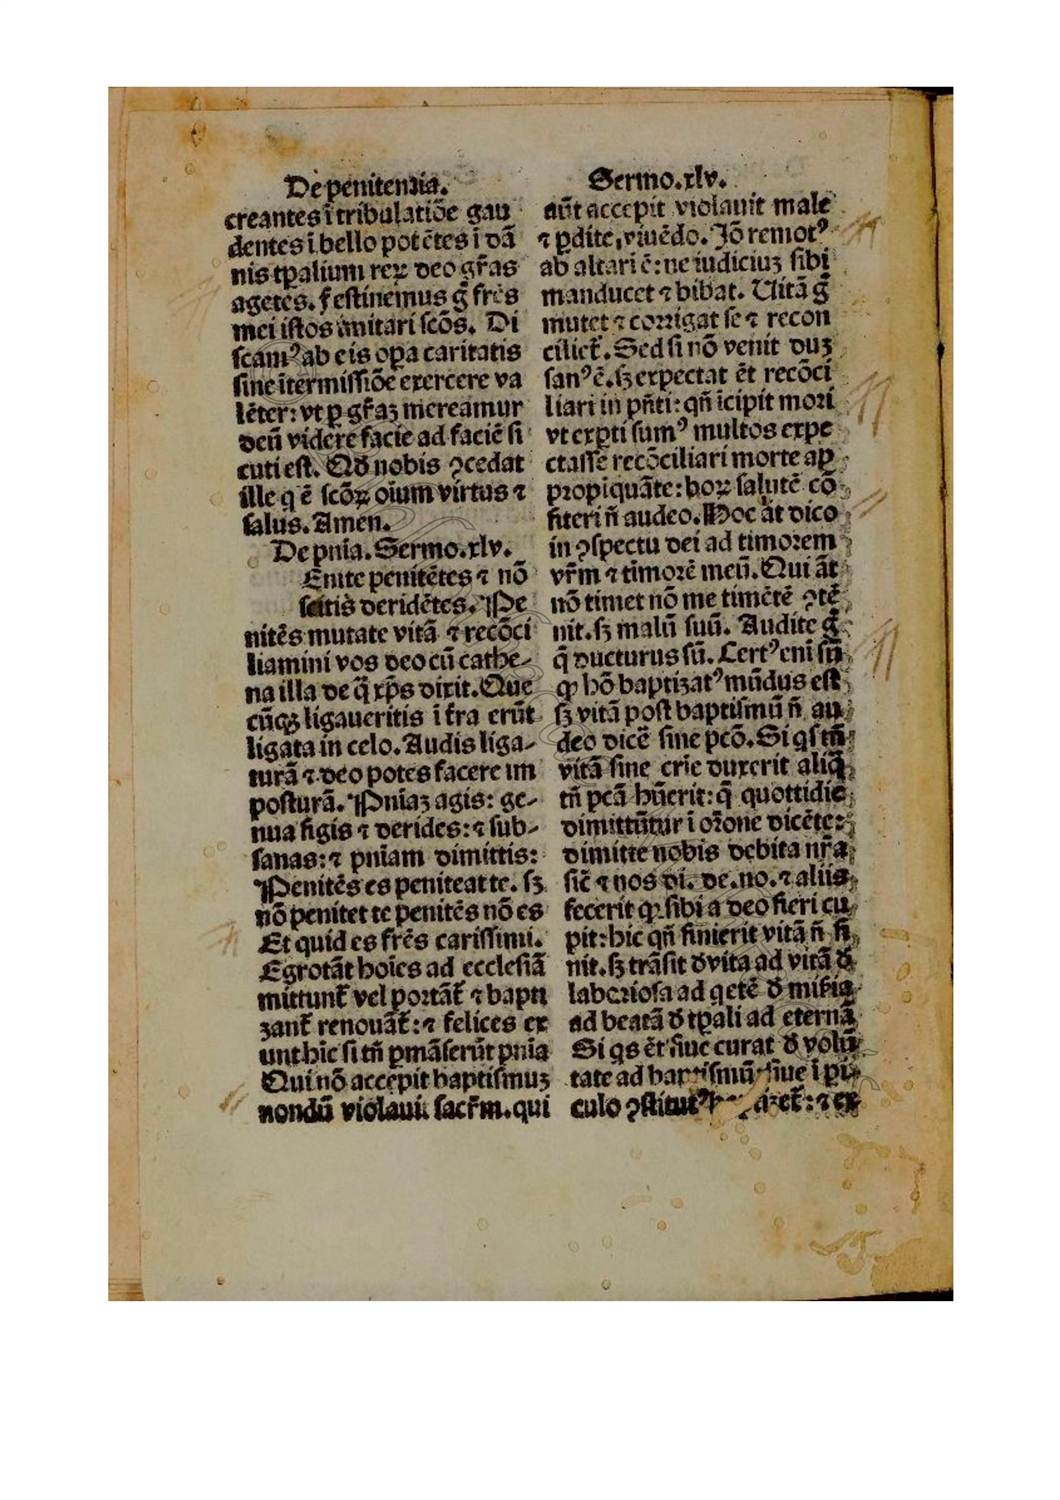 De penitentia.
creantes ī tribulatiōe gau
dentes ī bello potētes ī dā
nis tꝑalium rex deo gr̄as
agētes. festinemus g̊ fr̄es
mei istos imitari scōs. Di
scamꝰ ab eis oꝑa caritatis
sine ītermissiōe exercere va
lēter: vt ꝑ gr̄aꝫ mereamur
deū videre facie ad faciē si
cuti est. Qd̓ nobis ꝯcedat
ille q ē scōꝝ oīum virtus ⁊
salus. Amen.
De pnīa. Sermo. xlv.
Enite penitētes ⁊ nō
scitis deridētes. Pe
nitēs mutate vitā ⁊ recōci
liamini vos deo cū cathe-
na illa de q̄ xp̄s dixit. Que
cūqꝫ ligaueritis ī t̄ra erūt
ligata in celo. Audis liga-
turā ⁊ deo potes facere im
posturā. Pnīaꝫ agis: ge-
nua figis ⁊ derides: ⁊ sub-
sanas: ⁊ pnīam dimittis:
Penitēs es peniteat te. sꝫ
nō penitet te penitēs nō es
Et quid es fr̄es carissimi.
Egrotāt hoīes ad ecclesiā
mittunt̄ vel portāt̄ ⁊ bapti
zant̄ renouāt̄: ⁊ felices ex
unt hic si tn̄ ꝑmāserūt pnīa
Qui nō accepit baptismuꝫ
nondū violauit sacr̄m. qui
Sermo. xlv.
aūt accepit violauit male
⁊ ꝑdite, viuēdo. Iō remotꝰ
ab altari ē: ne iudiciuꝫ sibi
manducet ⁊ bibat. Uitā g̊
mutet ⁊ corrigat se ⁊ recon
ciliet̄. Sed si nō venit duꝫ
sanꝰ ē. sꝫ expectat ēt recōci
liari in pn̄ti: qn̄ īcipit mori
vt exꝑti sumꝰ multos expe
ctasse recōciliari morte aꝑ
propiquāte: hoꝝ salutē cō
fiteri n̄ audeo. Hoc āt dico
in ꝯspectu dei ad timorem
vr̄m ⁊ timorē meū. Qui āt
nō timet nō me timētē ꝯtē
nit. sꝫ malū suū. Audite g̊
q̄ ducturus sū. Certꝰ enī sū
ꝙ hō baptizatꝰ mūdus est
sꝫ vitā post baptismū n̄ au
deo dicē sine pcō. Si qs tn̄
vitā sine cr̄ie duxerit aliq̄
tn̄ pcā hūerit: q̄ quottidie
dimittūtur ī or̄one dicēte:
dimitte nobis debita nr̄a
sic̄ ⁊ nos di. de. no. ⁊ aliis
fecerit qꝛ sibi a deo fieri cu
pit: hic qn̄ finierit vitā n̄ fi
nit. sꝫ trāsit d̓ vita ad vitā d̓
laboriosa ad qetē d̓ mis̄ia
ad beatā d̓ tꝑali ad eternā
Si qs ēt siue curat d̓ volū
tate ad baptismū siue ī ꝑi
culo ꝯstitutꝰ ⁊ ex